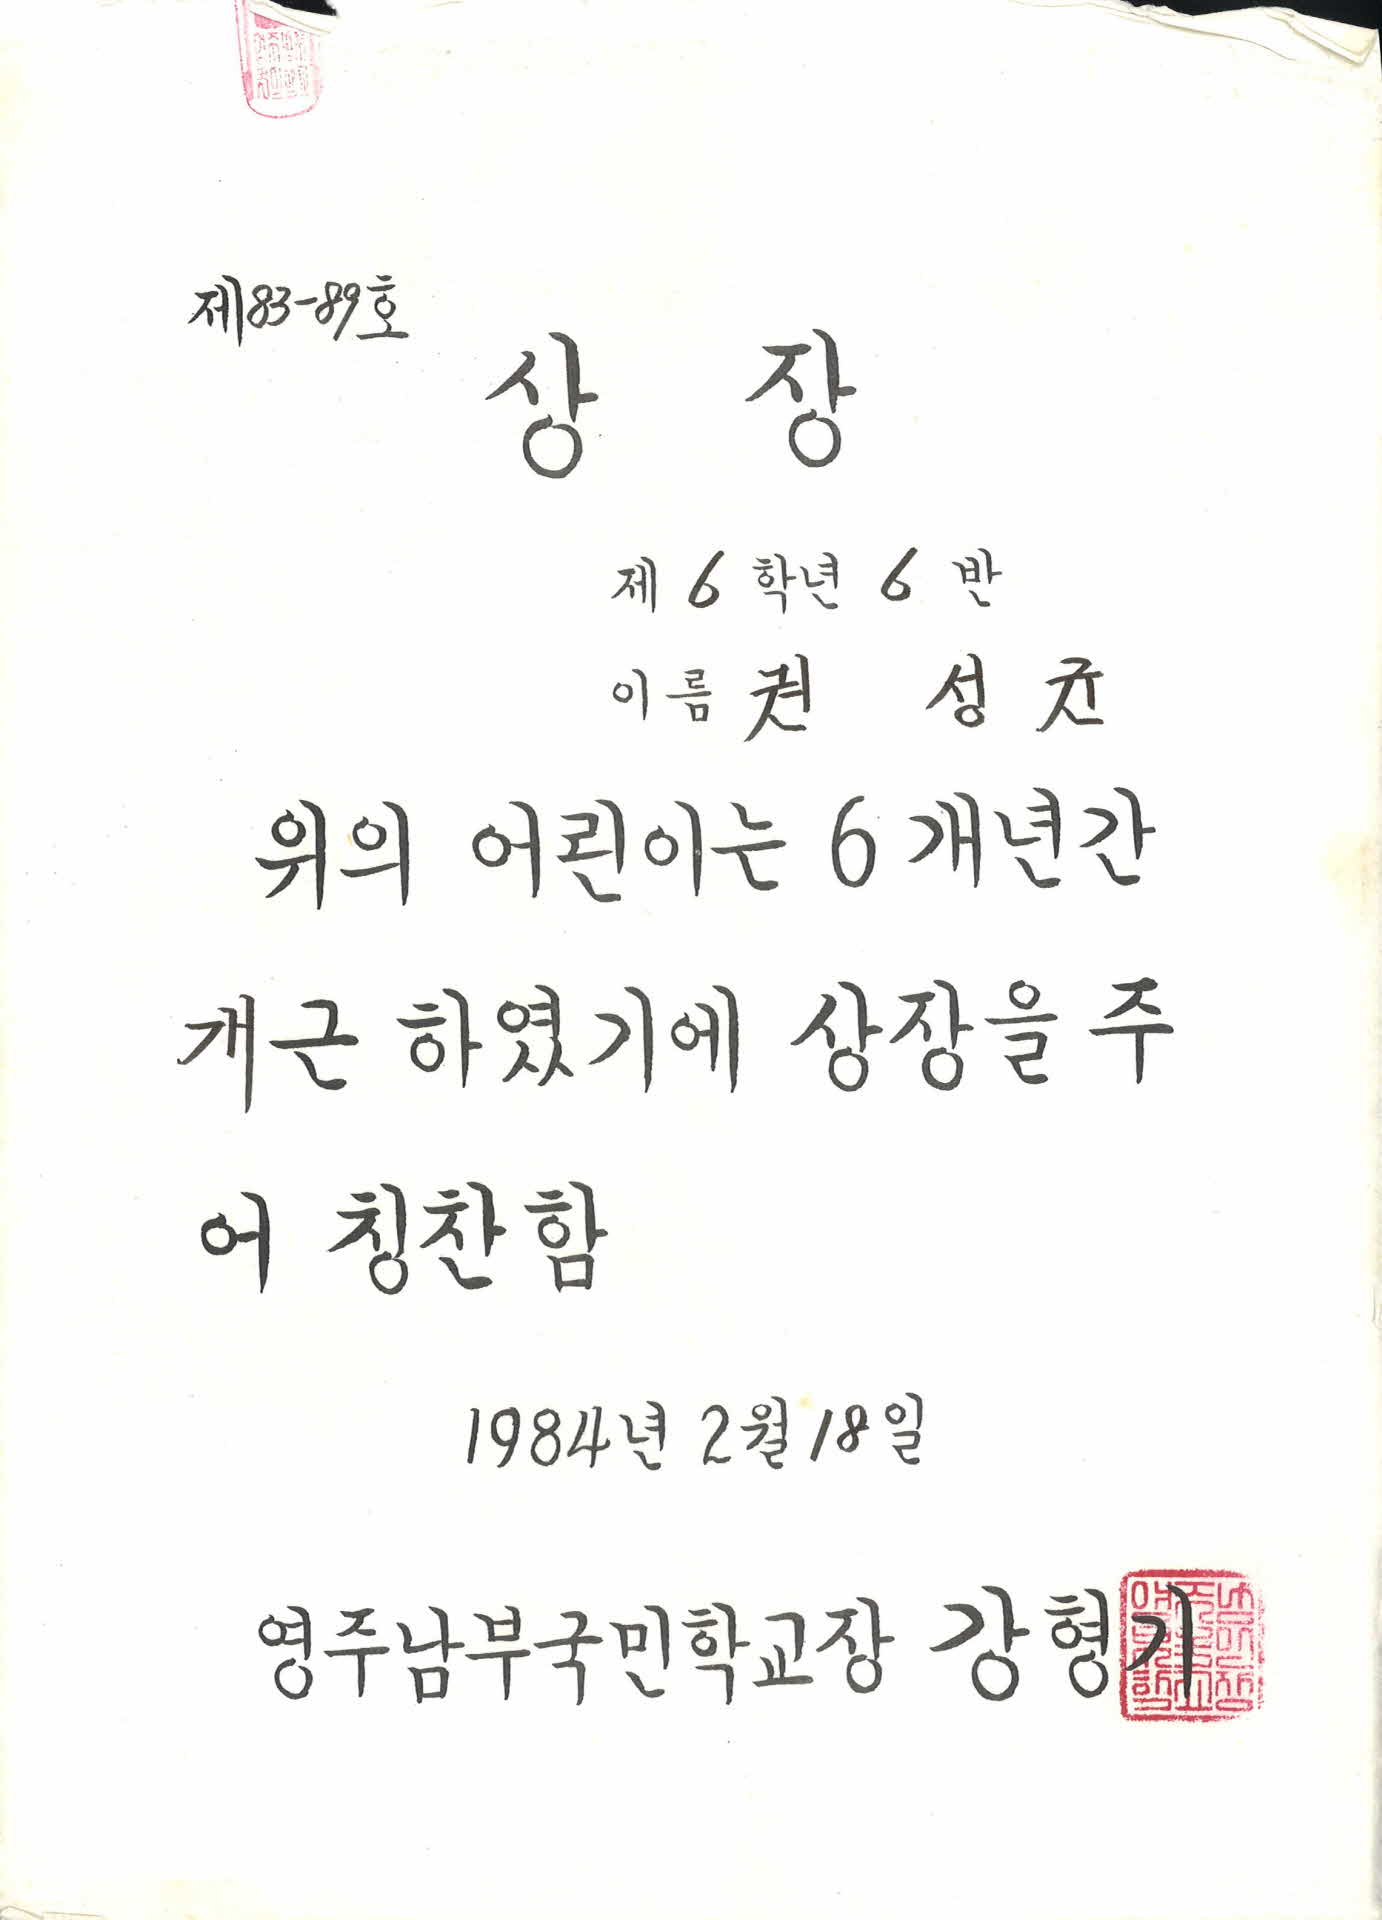 제83-89호
상 장
제 6 학년 6 반
이름 권 성 균
위의 어린이는 6개년간
개근 하였기에 상장을 주
어 칭찬함
1984년 2월 18일
영주남부국민학교장 강형기